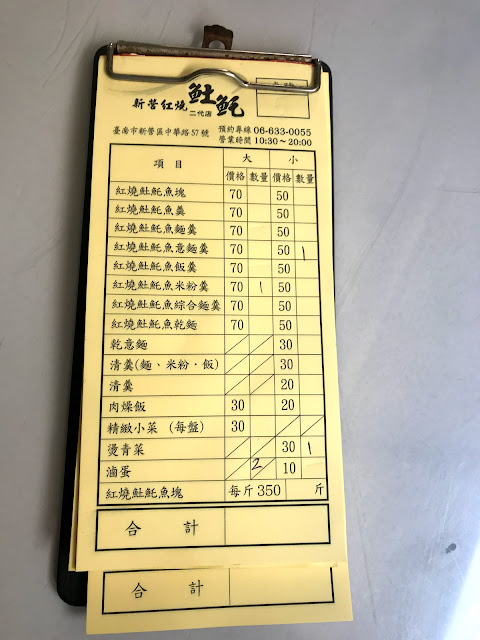 新營紅燒 𩵚魠
二代店
臺南市新營區中華路57號 預約專線 06-633-0055
營業時間 10:30~20:00
項目 大 小
價格 數量 價格 數量
紅燒𩵚魠魚塊 70 50
紅燒𩵚魠魚羹 70 50
紅燒𩵚魠魚麵羹 70 50
紅燒𩵚魠魚意麵羹 70 50 1
紅燒𩵚魠魚飯羹 70 50
紅燒𩵚魠魚米粉羹 70 1 50
紅燒𩵚魠魚綜合麵羹 70 50
紅燒𩵚魠魚乾麵 70 50
乾意麵 30
清羹(麵、米粉‧飯) 30
清羹 20
肉燥飯 30 20
精緻小菜 (每盤) 30
燙青菜 30 1
滷蛋 2 10
紅燒𩵚魠魚塊 每斤350 斤
合計
合計